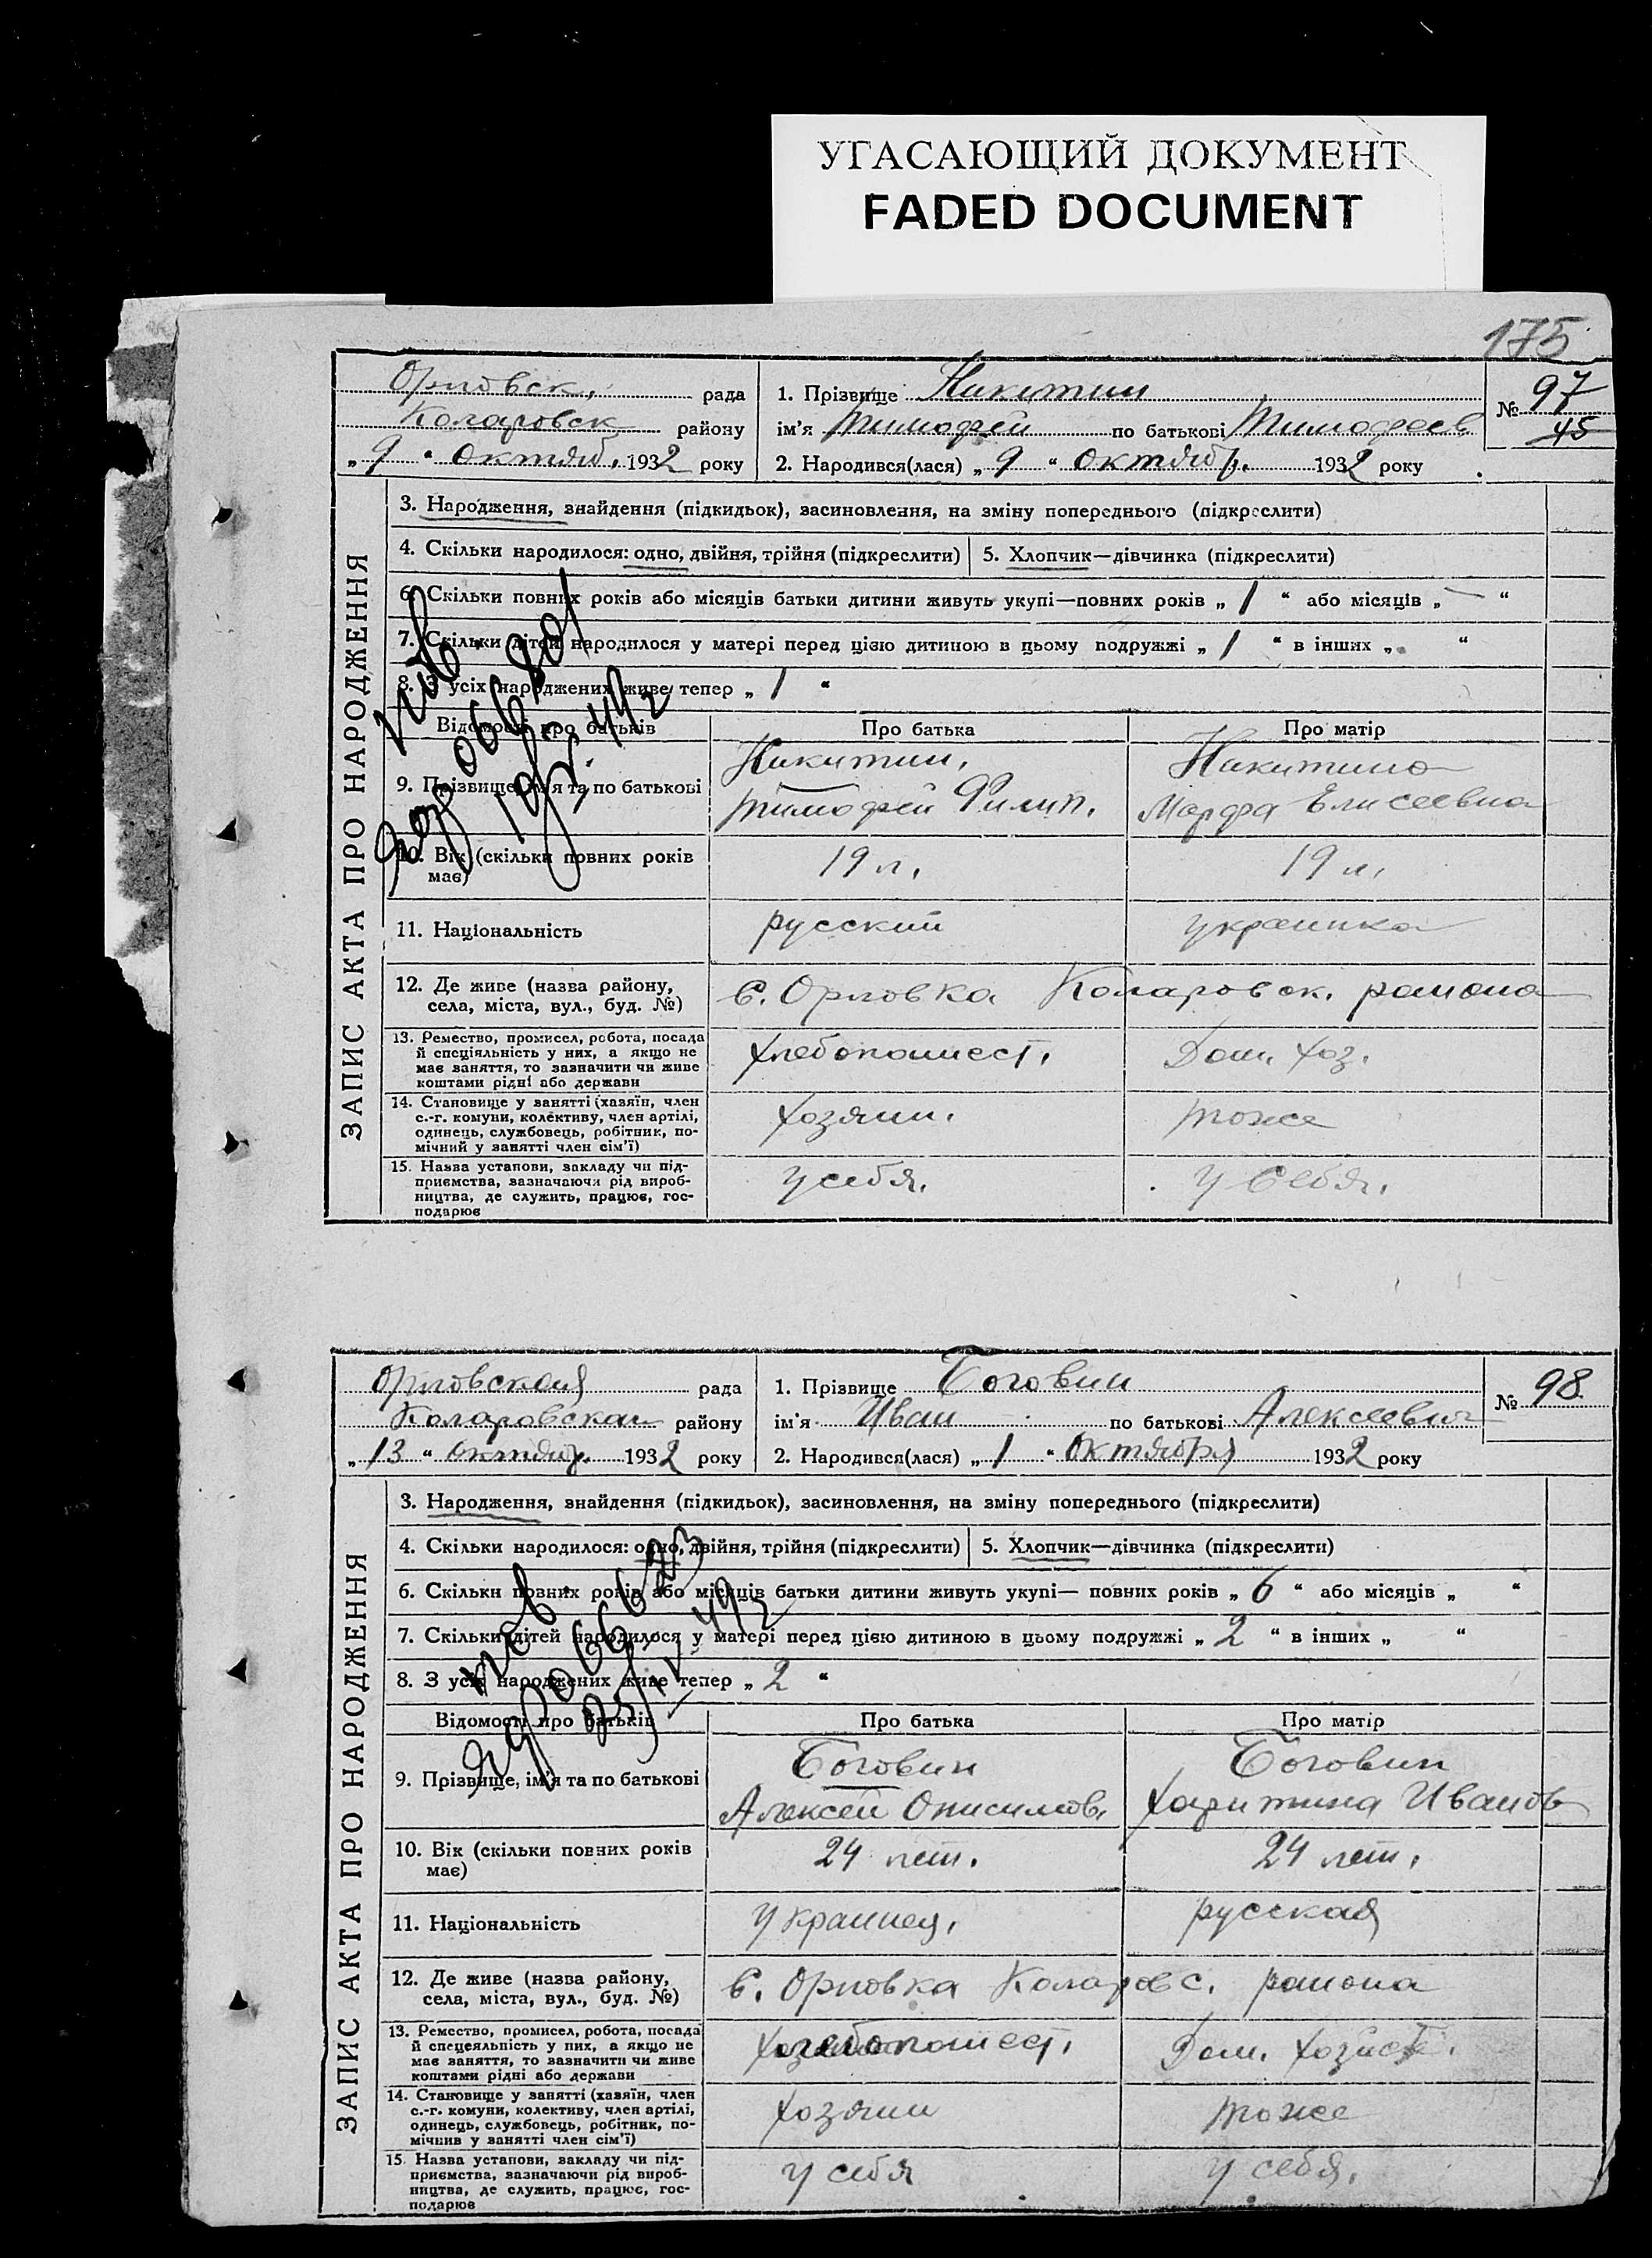 УГАСАЮЩИЙ ДОКУМЕНТ
FADED DOCUMENT
175
Орловск. рада
Коларовск району
„ 9 “ Октяб. 1932 року
1. Прізвище Никитин
ім'я Тимофей по батькові Тимофеев
2. Народився(лася) „ 9 “ Октябр. 1932 року
№ 97
45
ЗАПИС АКТА ПРО НАРОДЖЕННЯ
3. Народження, знайдення (підкидьок), засиновлення, на зміну попереднього (підкреслити)
4. Скільки народилося: одно, двійня, трійня (підкреслити) 5. Хлопчик—дівчинка (підкреслити)
6. Скільки повних років або місяців батьки дитини живуть укупі—повних років „ 1 “ або місяців „ — “
7. Скільки дітей народилося у матері перед цією дитиною в цьому подружжі „ 1 “ в інших „ “
8. З усіх народжених живе тепер „ 1 “
Відомості про батьків Про батька Про матір
9. Прізвище, ім'я та по батькові
Никитин,
Тимофей Филип.
Никитина
Марфа Елисеевна
10. Вік (скільки повних років
має)
19 л. 19 л.
11. Національність русский украинка
12. Де живе (назва району,
села, міста, вул., буд. №)
С. Орловка Коларовск. района
13. Ремество, промисел, робота, посада
й спеціяльність у них, а якщо не
має заняття, то зазначити чи живе
коштами рідні або держави
Хлебопашест. Дом. хоз.
14. Становище у занятті (хазяїн, член
с.-г. комуни, колективу, член артілі,
одинець, службовець, робітник, по-
мічний у занятті член сім'ї)
хозяин. тоже
15. Назва установи, закладу чи під-
приємства, зазначаючи рід вироб-
ництва, де служить, працює, гос-
подарює
у себя. у себя.
Орловская рада
Коларовская району
„ 13 “ октябр. 1932 року
1. Прізвище Боговин
ім'я Иван по батькові Алексеевич
2. Народився(лася) „ 1 “ Октября 1932 року
№ 98
ЗАПИС АКТА ПРО НАРОДЖЕННЯ
3. Народження, знайдення (підкидьок), засиновлення, на зміну попереднього (підкреслити)
4. Скільки народилося: одно, двійня, трійня (підкреслити) 5. Хлопчик—дівчинка (підкреслити)
6. Скільки повних років або місяців батьки дитини живуть укупі— повних років „ 6 “ або місяців „ “
7. Скільки дітей народилося у матері перед цією дитиною в цьому подружжі „ 2 “ в інших „ “
8. З усіх народжених живе тепер „ 2 “
Відомості про батьків Про батька Про матір
9. Прізвище, ім'я та по батькові
Боговин
Алексей Онисимов.
Боговин
Харитина Иванов
10. Вік (скільки повних років
має)
24 лет. 24 лет.
11. Національність украинец. русская
12. Де живе (назва району,
села, міста, вул., буд. №)
С. Орловка Коларовс. района
13. Ремество, промисел, робота, посада
й спецеяльність у них, а якщо не
має заняття, то зазначити чи живе
коштами рідні або держави
Дом. хозяст.
14. Становище у занятті (хазяїн, член
с.-г. комуни, колективу, член артілі,
одинець, службовець, робітник, по-
мічнив у занятті член сім'ї)
хозяин тоже
15. Назва установи, закладу чи під-
приємства, зазначаючи рід вироб-
ництва, де служить, працює, гос-
подарює
у себя у себя.